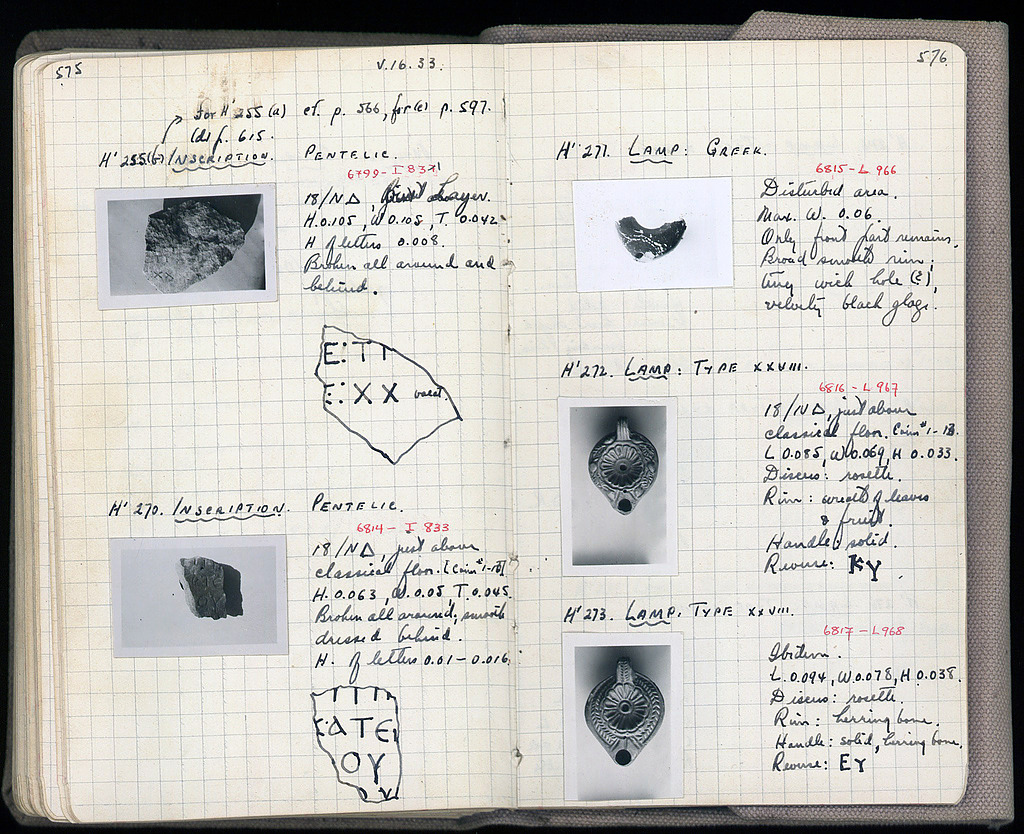 575
V.16.33.
For H' 255 (a) cf. p. 566, for (c) p. 597.
(d) p. 615.
H' 255(b) INSCRIPTION. PENTELIC.
6799 - I 831
18/NΔ, Layer.
H. 0.105, W. 0.105, T. 0.042
H of letters 0.008.
Broken all around and
behind.
Ε:ΤΙ
Ε:ΧΧ vacat
H' 270. INSCRIPTION. PENTELIC.
6814 - I 833
18/NΔ, just above
classical floor. [Coins #1-18]
H. 0.063, W. 0.05, T. 0.045.
Broken all around, smooth
dressed behind.
H. of letters 0.01 - 0.016.
ΑΤΕΙ
ΟΥ
576
H' 271. LAMP: GREEK.
6815 - L 966
Disturbed area.
Max. W. 0.06.
Only front part remains.
Broad smooth rim;
tiny wick hole (?),
velvety black glaze.
H' 272. LAMP: TYPE XXVIII.
6816 - L 967
18/NΔ, just above
classical floor. Coins #1-18.
L 0.085, W. 0.069, H 0.033.
Discus: rosette.
Rim: wreath of leaves
& fruit.
Handle: solid.
Reverse: ΚΥ
H' 273. LAMP. TYPE XXVIII.
6817 - L 968
Ibidem.
L. 0.094, W. 0.078, H 0.038.
Discus: rosette.
Rim: herring bone.
Handle: solid, herring bone.
Reverse: ΕΥ